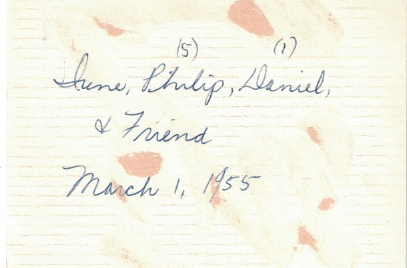 (5) (1)
June, Philip, Daniel,
& Friend
March 1, 1955